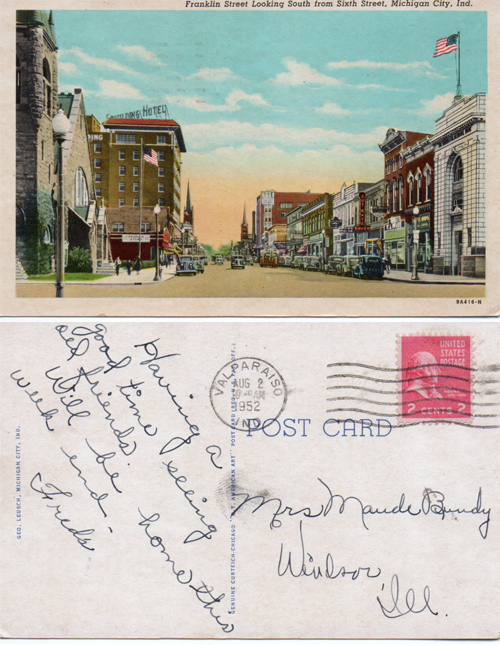 Franklin Street Looking South from Sixth Street, Michigan City, Ind.
SPAULDING HOTEL
9A416-N
Having a
good time seeing
old friends.
Will be home this
week end.
Freds
GEO. LEUSCH, MICHIGAN CITY, IND.
VALPARAISO
AUG 2
AM
1952
IND.
UNITED
STATES
POSTAGE
2 CENTS 2
POST CARD
GENUINE CURTEICH-CHICAGO "C.T. AMERICAN ART" POST CARD
Mrs Maude Bundy
Windsor
Ill.